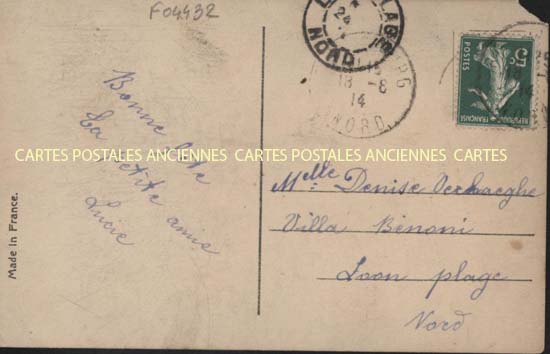 F04432
NORD
18-8
14
NORD
5c
POSTES
REPUBLIQUE FRANÇAISE
Bonne fête
Ta petite amie
Lucie
CARTES POSTALES ANCIENNES CARTES POSTALES ANCIENNES CARTES
Melle Denise Verhaeghe
Villa Bénoni
Loon plage
Nord
Made in France.